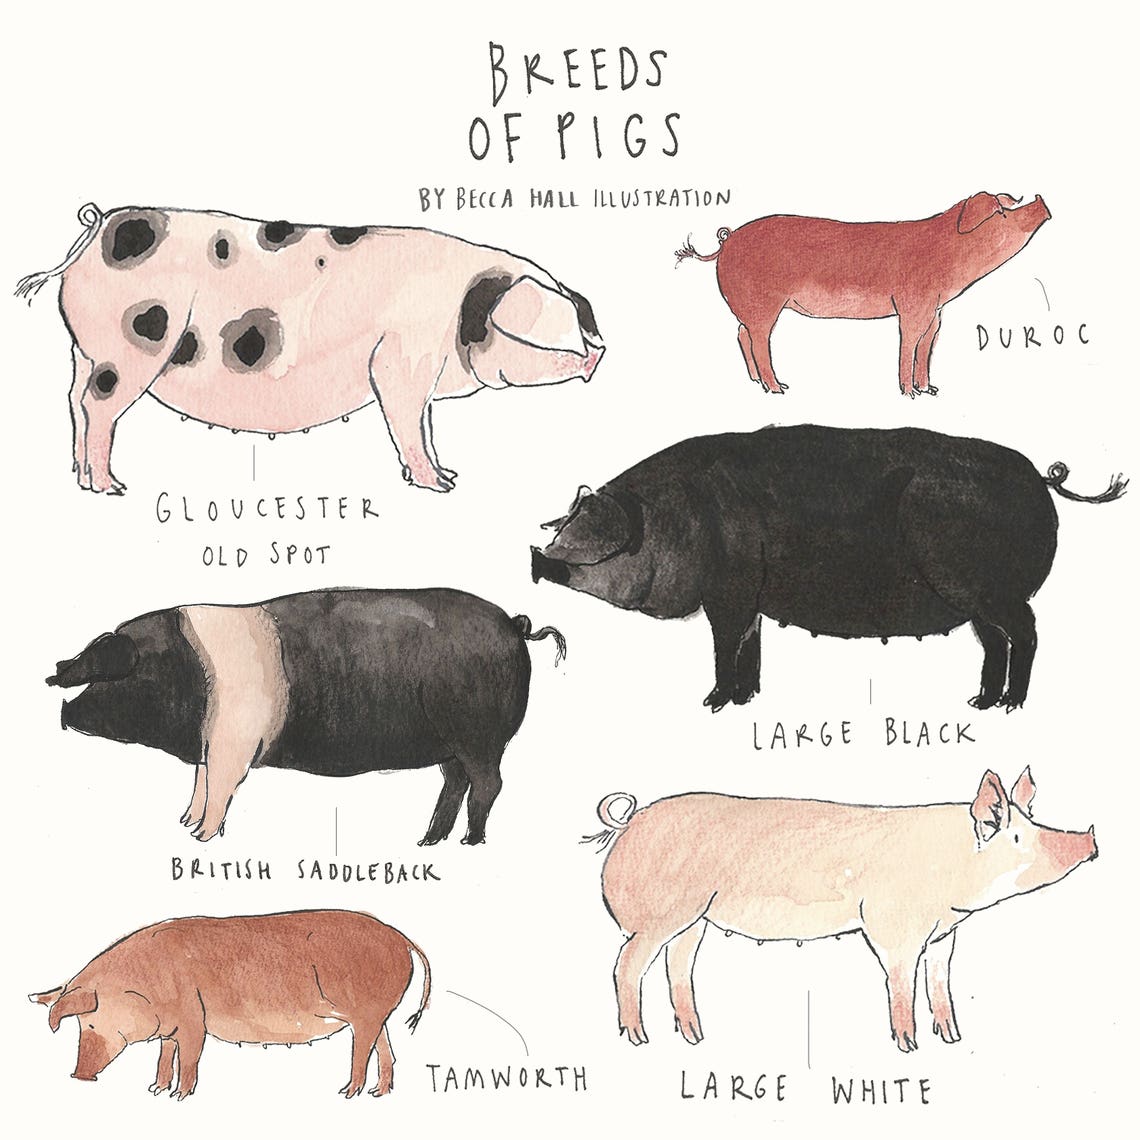 BREEDS
OF PIGS
BY BECCA HALL ILLUSTRATION
DUROC
GLOUCESTER
OLD SPOT
LARGE BLACK
BRITISH SADDLEBACK
TAMWORTH
LARGE WHITE